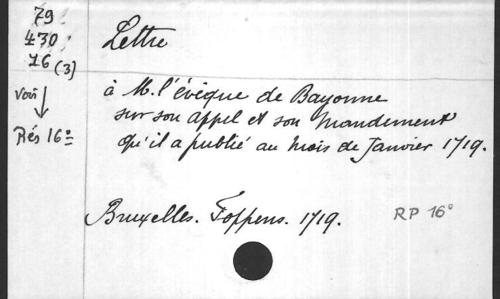 79
430
16 (3)
Voir
Rés 16°
Lettre
à M. l'évêque de Bayonne
sur son appel et son Mandement
qu'il a publié au mois de Janvier 1719.
Bruxelles. Foppens. 1719.
RP 16°